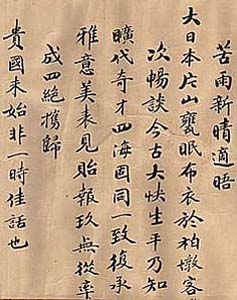 苦雨新晴適晤
大日本片山甕眠布衣於柏墩客
次暢談今古大快生平乃知
曠代奇才四海固同一致復承
雅意美未見貽報玖無從率
成四絕攜歸
貴國未始非一時佳話也